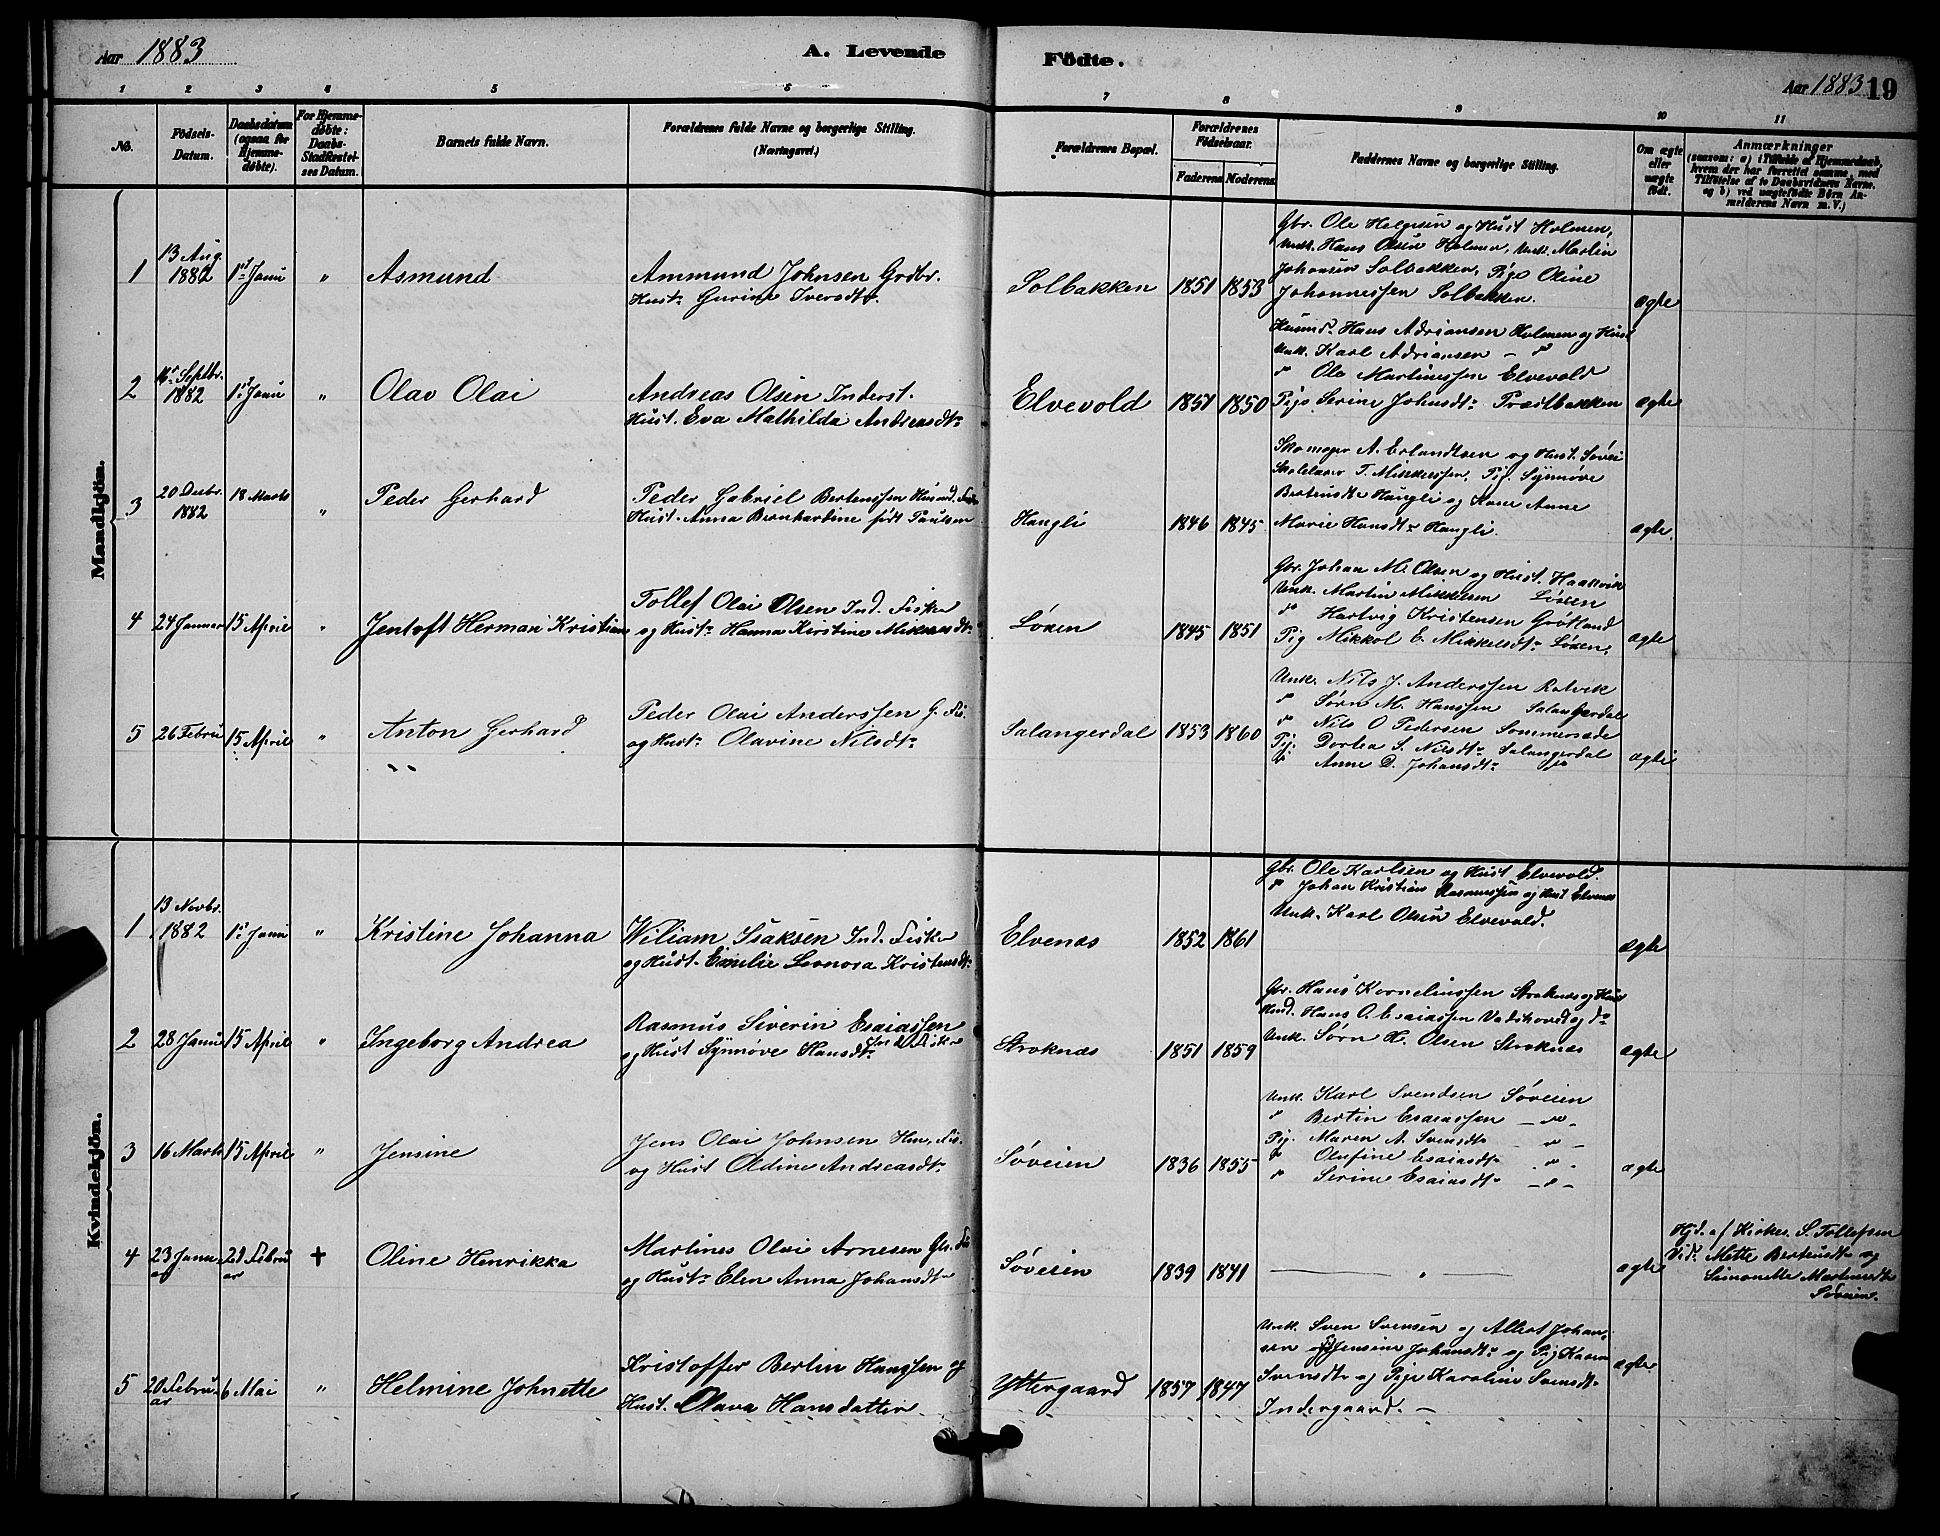 Aar 1883
A. Levende
Födte.
Aar 1883 19
1 2 3 4 5 6 7 8 9 10 11
No.
Födsels-Datum.
Daabsdatum (ogsaa for Hjemmedøbte).
For Hjemmedøbte: Daabs-Stadfæstelses Datum.
Barnets fulde Navn.
Forældrenes fulde Navne og borgerlige Stilling. (Næringsvei.)
Forældrenes Bopæl.
Forældrenes Födselsaar.
Faderens Moderens
Faddernes Navne og borgerlige Stilling.
Om ægte eller uægte födt.
Anmærkninger
(saasom: a) i Tilfælde af Hjemmedaab, hvem der har forrettet samme, med Tilföielse af to Daabsvidners Navne. og b) ved uægtefödte Börn Anmelderens Navn m.V.)
Mandkjön.
1 13 Aug. 1882 1ste Janu " Asmund
Ammund Johnsen Grdbr.
Hust. Gurine Iversdtr
Solbakken 1851 1853
Gbr. Ole Helgesen og Hust Holmen,
Unk. Hans Olsen Holmen, Unk. Martin
Johansen Solbakken, Pige Oline
Johannessen Solbakken.
ægte
2 Septbr. 1882 1ste Janu " Olav Olai
Andreas Olsen Inderst.
Hust. Eva Mathilda Andreasdtr
Elvevold 1851 1850
Husmd. Hans Adriansen Holmen og Hust
Unk. Karl Adriansen – "
" Ole Martinessen Elvevold
Pige Serine Johnsdtr Præstbakken
ægte
3 20 Decbr. 1882 18 Marts " Peder Gerhard
Peder Gabriel Bertenssen Husmd. Fisker
Hust. Anna Bernhardine født Paulsen
Hangli 1846 1845
Skomager A. Erlandtsen og Hust. Søvei
Skolelærer T. Mikkelssen, Pig. Synnøve
Bertensdtr Hangli og Kone Anne
Marie Hansdtr Hangli.
ægte.
4 24 Januar 15 April " Jentoft Herman Kristian
Tollef Olai Olsen Ind. Fisker
og Hustr Hanna Kirstine Mikkelsdtr
Løxen 1845 1851
Gbr. Johan M. Olsen og Hust. Haakvik
Unk. Martin Mikkelsen Løxen
" Hartvig Kristensen Grötland
Pig Mikkol E. Mikkelsdtr Løxen.
ægte
5 26 Febru 15 April " Anton Gerhard
Peder Olai Anderssen G. Fis.
og Hustr Olavine Nilsdtr
Salangerdal 1853 1860
Unk. Nils J. Anderssen Rotvik
" Sørn M. Hanssen Salangerdal
" Nils O Pedersen Sommersæde
Pig. Dortea S. Nilsdtr Salangerdal
" Anne D. Johansdtr do
ægte
Kvindekjön.
1 13 Novbr. 1882 1ste Janu " Kristine Johanna
Wiliam Isaksen Ind. Fisker
og Hust. Emilie Leonora Kristensdtr
Elvenæs 1852 1861
Gbr. Ole Karlsen og Hust Elvevold.
" Johan Kristian Rasmussen og Hust Elvenes
Unk. Karl Olsen Elvevold.
ægte
2 28 Janu 15 April " Ingeborg Andrea
Rasmus Siverin Esaiassen
og Hust Synnøve Hansdtr Ind. Fisker
Stroknæs 1851 1859
Gbr. Hans Kornelinssen Stroknæs og Hust
Husd. Hans O. Esaiassen Vadshoved og do
Unk. Sørn H. Olsen Stroknæs
ægte
3 16 Marts 15 April " Jensine
Jens Olai Johnsen Hm. Fis.
og Hust Oldine Andreasdtr
Søveien 1836 1855
Unk. Karl Svendsen Søveien
" Bertin Esaiassen – " –
Pig. Maren A. Svensdtr – " –
" Olufine Esaiasdtr – " –
" Serine Esaiasdtr – " –
ægte
4 23 Januar 21 Februar + Oline Henrikka
Martines Olai Arnesen Gbr. Fis
og Hustr Elen Anna Johansdtr
Søveien 1839 1841 — " —
ægte
Hjd. af Kirkes. S. Tollefsen
Vid. Mette Bertensdtr og
Simonette Martinsdtr
Søveien.
5 20 Februar 6 Mai " Helmine Johnette
Kristoffer Bertin Hansen og
Hust. Olava Hansdatter
Yttergaard 1857 1847
Unk. Sven Svensen og Albert Johan-
sen Jensine Johansdtr og Pig Karen
Svensdtr og Pige Karoline Svensdtr
Indergaard. –
ægte